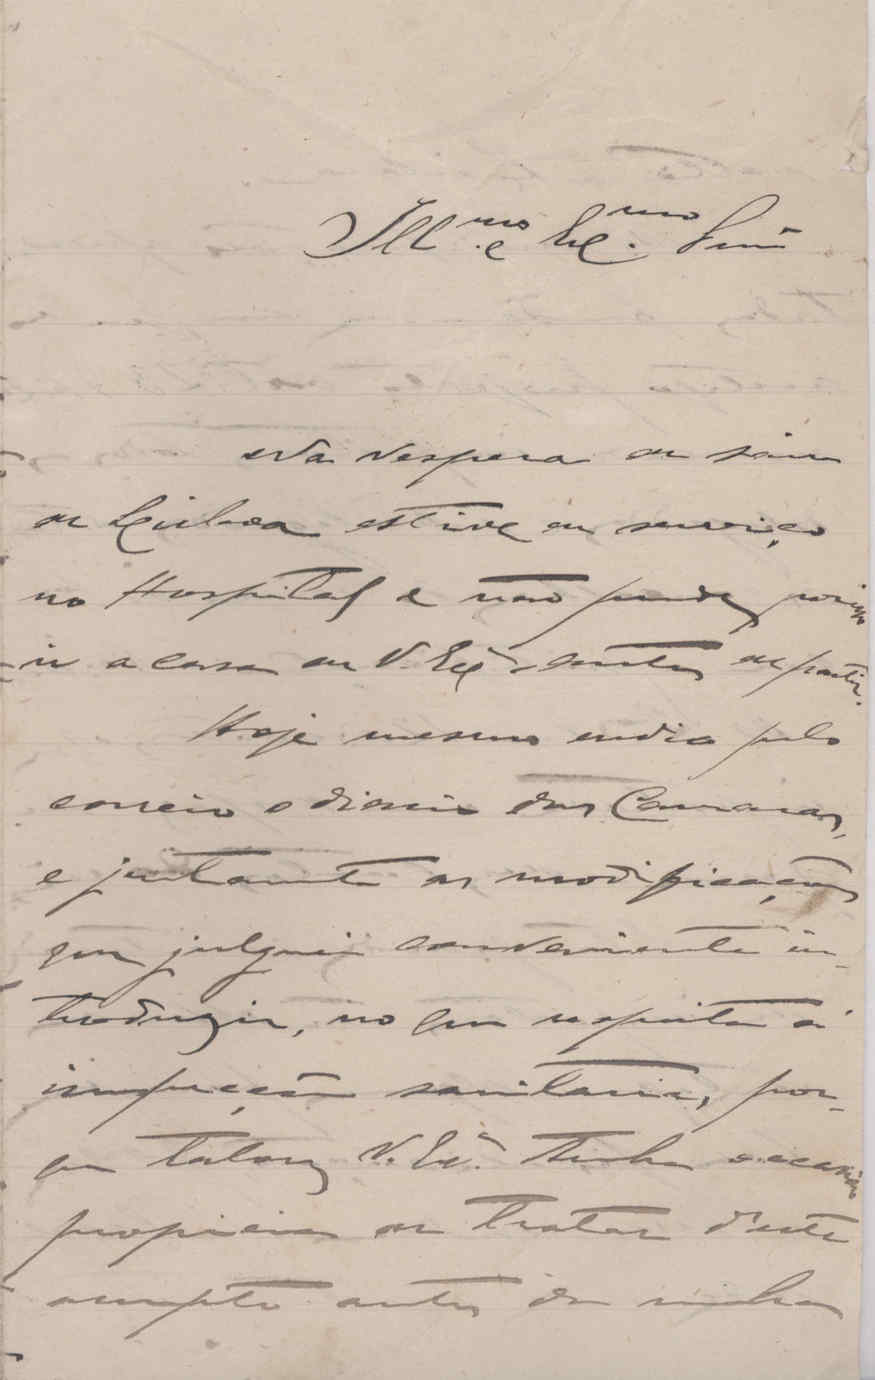 Ill.mo e Ex.mo Snr
Na vespera de sair
de Lisboa estive de serviço
no Hospital e não pude, por isso
ir a casa de V. Exª antes de partir.
Hoje mesmo envio pelo
correio o diario das Camaras,
e juntamente as modificações
que julguei conveniente in-
troduzir, no que respeita á
inspecção sanitaria, por-
que talvez V. Exª. tenha occasião
propicia de tratar d'este
assumpto antes da minha